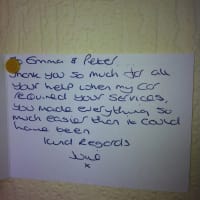 To Emma & Peter.
Thank you so much for all
your help when my car
required your services,
you made everything so
much easier than it could
have been
Kind Regards
June
x